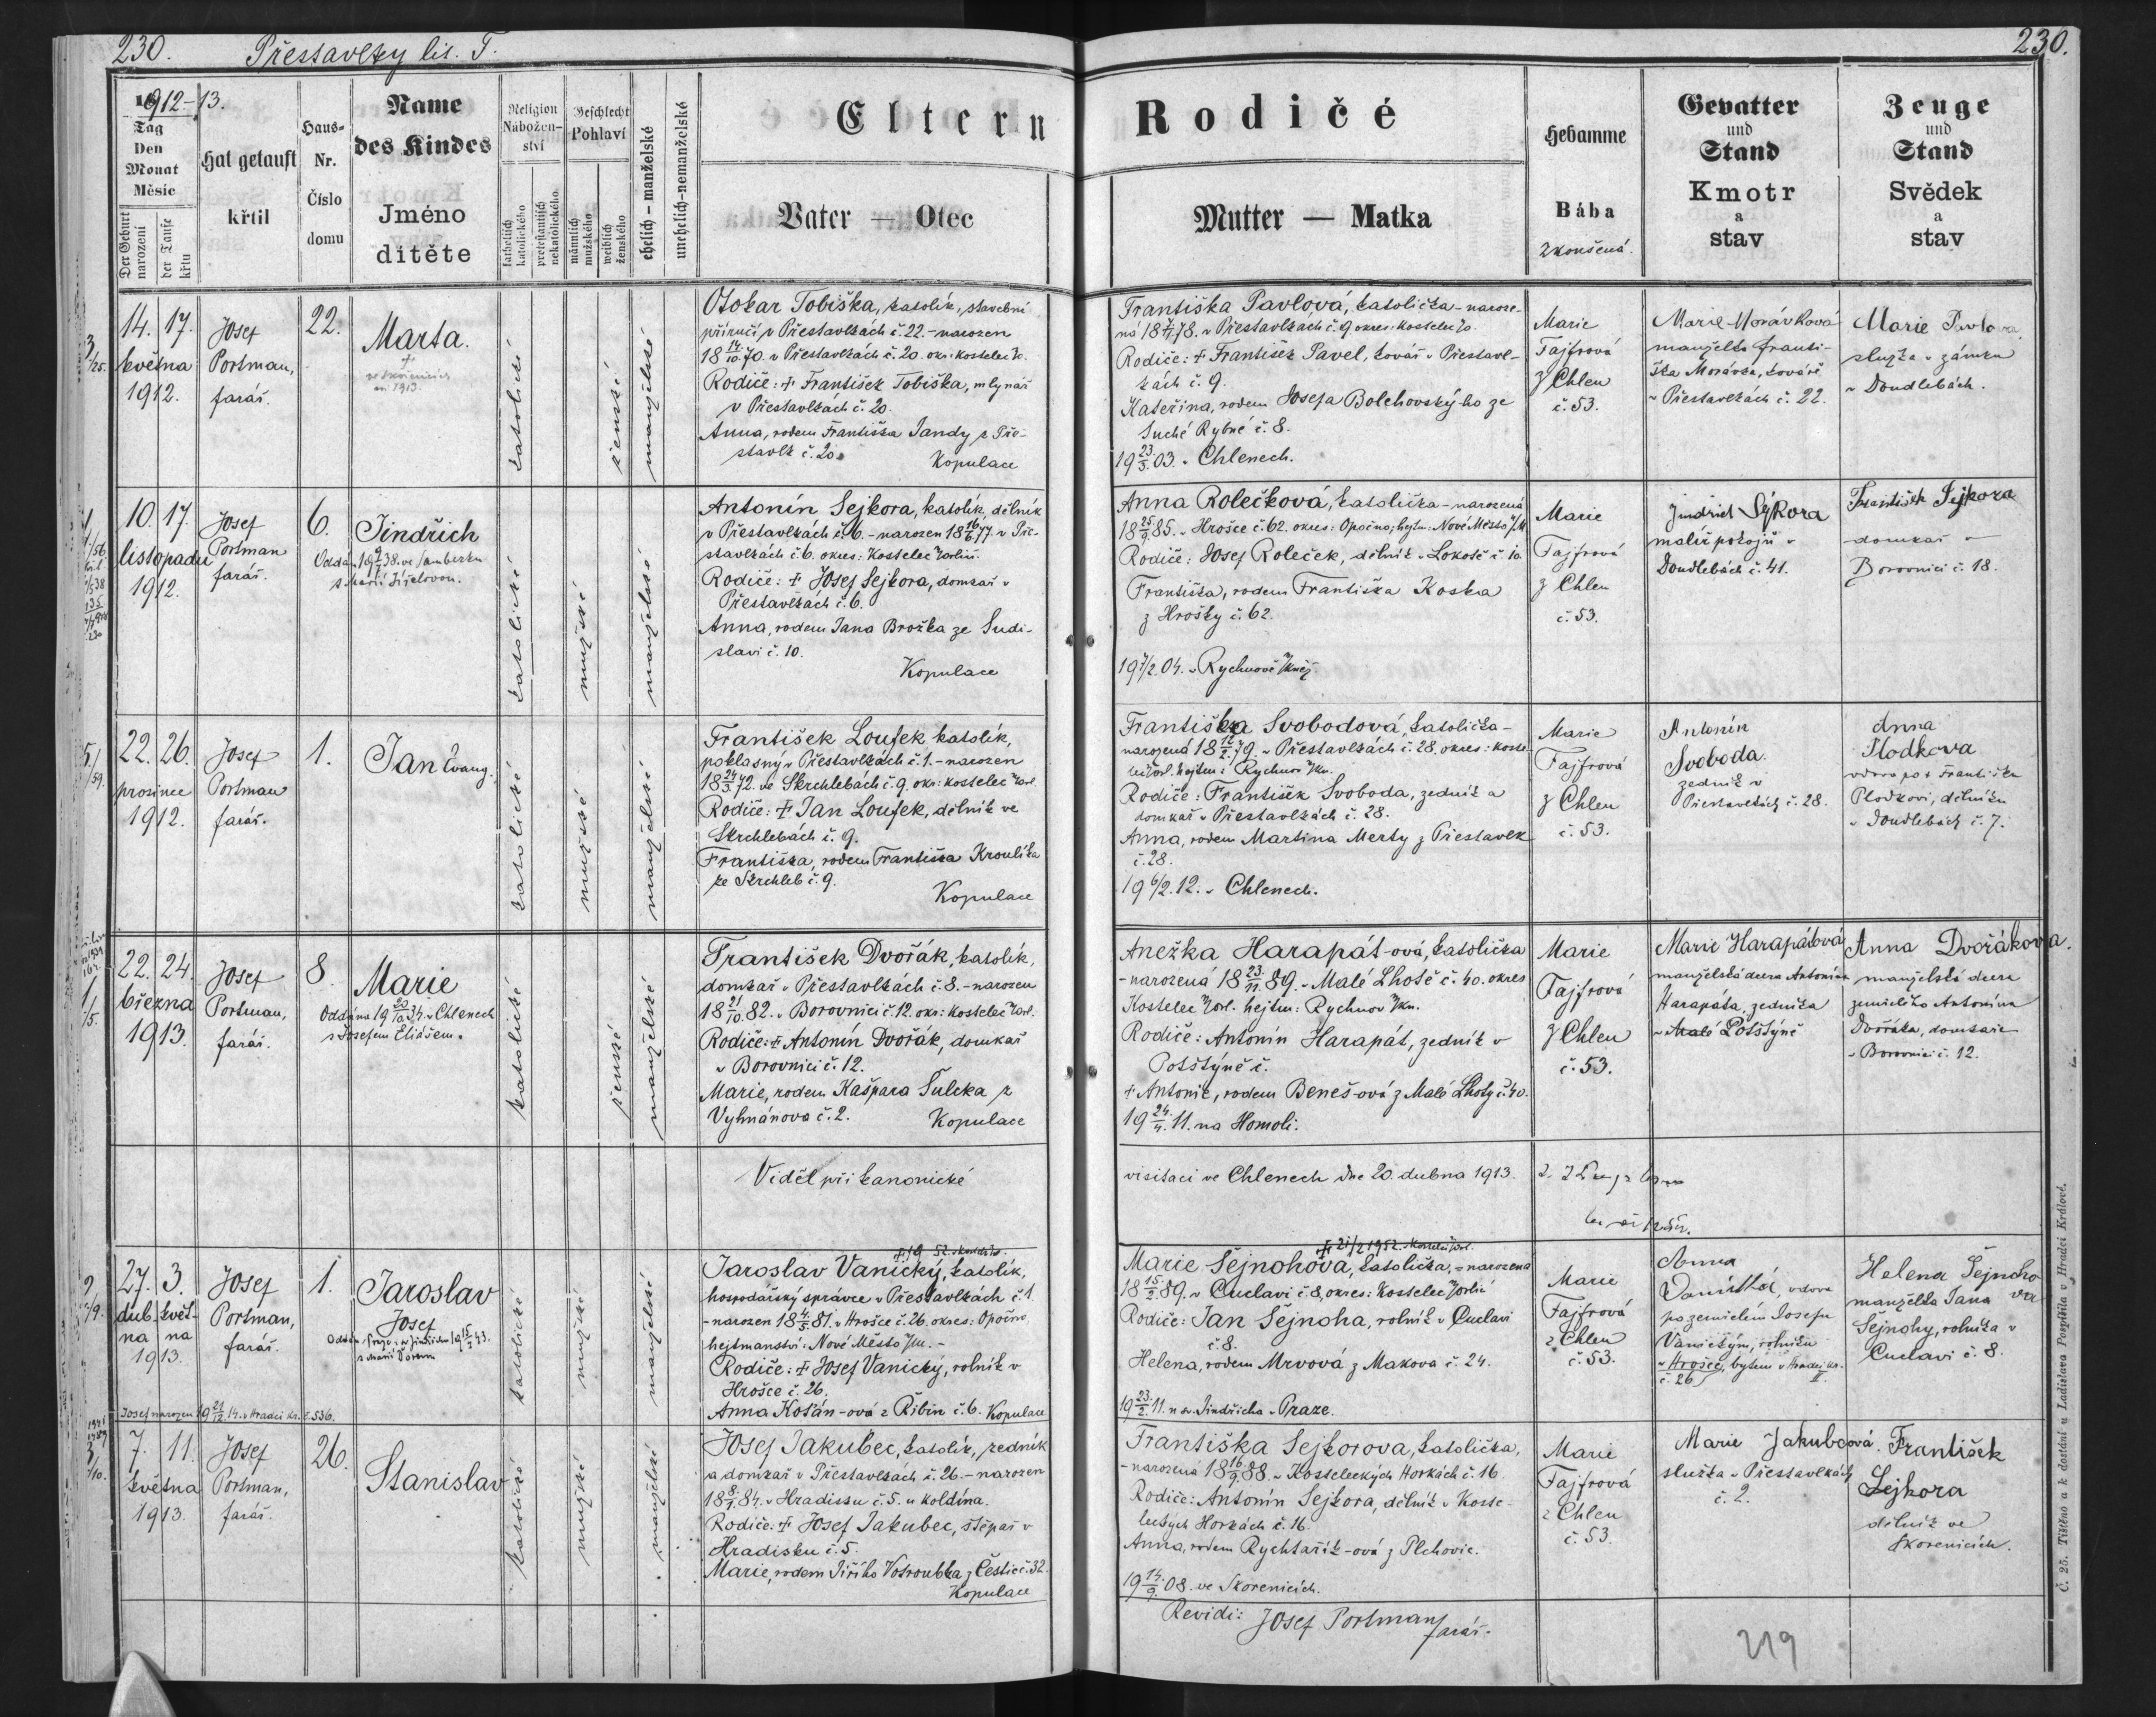 230. Přestavlky lit. T. 230.
1912–13.
Tag
Den
Monat
Měsíc
Der Geburt
narození
der Taufe
křtu
Hat getauft
křtil
Haus-
Nr.
Číslo
domu
Name
des Kindes
Jméno
dítěte
Religion
Nábožen-
ství
katholisch
katolického
protestantisch
nekatolického
Geschlecht
Pohlaví
männlich
mužského
weiblich
ženského
ehelich – manželské
unehelich-nemanželské
Eltern Rodičé
Vater — Otec
Mutter — Matka
Hebamme
Bába
zkoušená.
Gevatter
und
Stand
Kmotr
a
stav
Zeuge
und
Stand
Svědek
a
stav
14. 17.
května
1912.
Josef
Portman,
farář.
22.
Marta.
+
1913.
katolické
ženské
manželské
Otokar Tobiška, katolík, stavební
příručí, v Přestavlkách č. 22. – narozen
18 14/10. 70. v Přestavlkách č. 20. okr: Kostelec
Rodiče: + František Tobiška, mlynář
v Přestavlkách č. 20.
Anna, rodem Františka Jandy z Pře-
stavlk č. 20.
Kopulace
Františka Pavlová, katolička – naroze-
ná 18 78. v Přestavlkách č. 9. okres: Kostelec
Rodiče: + František Pavel, kovář v Přestavl-
kách č. 9.
Kateřina, rodem Josefa Bolehovský-ho ze
Suché Rybné č. 8.
19 23/5. 03. v Chlenech.
Marie
Fajfrová
z Chlen
č. 53.
Marie Morávková
manželka Franti-
ška Morávka, kováře
v Přestavlkách č. 22.
Marie Pavlova
služka v zámku
v Doudlebách.
10. 17.
listopadu
1912.
Josef
Portman
farář.
6.
Jindřich
katolické
mužské
manželské
Antonín Sejkora, katolík, dělník
v Přestavlkách č. 6. – narozen 18 16/6 77 v Pře-
stavlkách č. 6. okres: Kostelec
Rodiče: + Josef Sejkora, domkař v
Přestavlkách č. 6.
Anna, rodem Jana Brožka ze Sudi-
slavi č. 10.
Kopulace
Anna Rolečková, katolička – narozená
18 25/9 85. v Hrošce č. 62. okres: Opočno, hejtm: Nové Město n/M
Rodiče: Josef Roleček, dělník v Lokotě č. 10.
Františka, rodem Františka Koska
z Hrošky č. 62.
19 7/2. 04. v Rychnově n/Kněž.
Marie
Fajfrová
z Chlen
č. 53.
Jindrich Sýkora
malíř pokojů v
Doudlebách č. 41.
František Sejkora
domkař v
Borovnici č. 18.
22. 26.
prosince
1912.
Josef
Portman
farář.
1.
Jan Evang.
katolické
mužské
manželské
František Loufek katolík,
poklasný v Přestavlkách č. 1. – narozen
18 24/3. 72. ve Skrchlebách č. 9. okr: Kostelec n/Orl.
Rodiče: + Jan Loufek, dělník ve
Skrchlebách č. 9.
Františka, rodem Františka Kroulíka
ze Skrchleb č. 9.
Kopulace
Františka Svobodová, katolička –
narozená 18 12/2. 79. v Přestavlkách č. 28. okres: Koste-
lec n/Orl. hejtm: Rychnov n/Kn.
Rodiče: František Svoboda, zedník a
domkař v Přestavlkách č. 28.
Anna, rodem Martina Merty z Přestavlk
č. 28.
19 6/2. 12. v Chlenech.
Marie
Fajfrová
z Chlen
č. 53.
Antonín
Svoboda.
zedník v
Přestavlkách č. 28.
Anna
Plodkova
vdova po + Františku
Plodkovi, dělníku
v Doudlebách č. 7.
22. 24.
března
1913.
Josef
Portman,
farář.
8.
Marie
Oddána 19 20/10 34. v Chlenech
s Josefem Eliášem.
katolické
ženské
manželské
František Dvořák, katolík,
domkař v Přestavlkách č. 8. – narozen
18 21/10. 82. v Borovnici č. 12. okr: Kostelec n/Orl.
Rodiče: + Antonín Dvořák, domkař
v Borovnici č. 12.
Marie, rodem Kašpara Šulcka z
Vyhnánova č. 2.
Kopulace
Anežka Harapát-ová, katolička
– narozená 18 23/11. 89. v Malé Lhotě č. 40. okres
Kostelec n/Orl. hejtm: Rychnov n/Kn.
Rodiče: Antonín Harapát, zedník v
Potštýně č.
+ Antonie, rodem Beneš-ová z Malé Lhoty č. 40.
19 24/4. 11. na Homoli.
Marie
Fajfrová
z Chlen
č. 53.
Marie Harapátová
manželská dcera Antonína
Harapáta, zedníka
v Malé Potštýně
Anna Dvořákova.
manželská dcera
zemřelého Antonína
Dvořáka, domkaře
v Borovnici č. 12.
Viděl při kanonické visitaci ve Chlenech dne 20. dubna 1913.
27. 3.
dub- květ-
na na
1913.
Josef
Portman,
farář.
1.
Jaroslav
Josef
katolické
mužské
manželské
Jaroslav Vanický, katolík,
hospodářský správce v Přestavlkách č. 1.
– narozen 18 4/5. 81. v Hrošce č. 26. okres: Opočno,
hejtmanství: Nové Město n/M. –
Rodiče: + Josef Vanický, rolník v
Hrošce č. 26.
Anna Košán-ová z Řibin č. 6. Kopulace
+ 21/2 1952. Kostelec n/Orl.
Marie Šejnohova, katolička, – narozena
18 15/2. 89. v Cuclavi č. 8, okres: Kostelec n/Orlicí
Rodiče: Jan Šejnoha, rolník v Cuclavi
č. 8.
Helena, rodem Mrvová z Makova č. 24.
19 23/2. 11. u sv. Jindřicha v Praze.
Marie
Fajfrová
z Chlen
č. 53.
Anna
Vanická, vdova
po zemřelém Josefu
Vanickým, rolníku
v Hrošce, bytem v Hradci Kr.
č. 26 II.
Helena Šejnoho
va
manželka Jana
Šejnohy, rolníka v
Cuclavi č. 8.
Josef narozen 19 21/12. 14. v Hradci Kr. č. 536.
7. 11.
května
1913.
Josef
Portman,
farář.
26.
Stanislav
katolické
mužské
manželské
Josef Jakubec, katolík, zedník
a domkař v Přestavlkách č. 26. – narozen
18 84. v Hradisku č. 5. u Koldína.
Rodiče: + Josef Jakubec, štěpař v
Hradisku č. 5.
Marie, rodem Jiřího Votroubka z Čestic č. 32.
Kopulace
Františka Sejkorova, katolička,
– narozená 18 16/9. 88. v Kosteleckých Horkách č. 16.
Rodiče: Antonín Sejkora, dělník v Koste-
leckých Horkách č. 16.
Anna, rodem Rychtařík-ová z Plchovic.
19 14/9. 08. ve Skorenicích.
Marie
Fajfrová
z Chlen
č. 53.
Marie Jakubcová.
služka v Přestavlkách
č. 2.
František
Sejkora
dělník ve
Skorenicích.
Revidi: Josef Portman
farář.
219
Č. 25. Tištěno a k dostání u Ladislava Pospíšila v Hradci Králové.